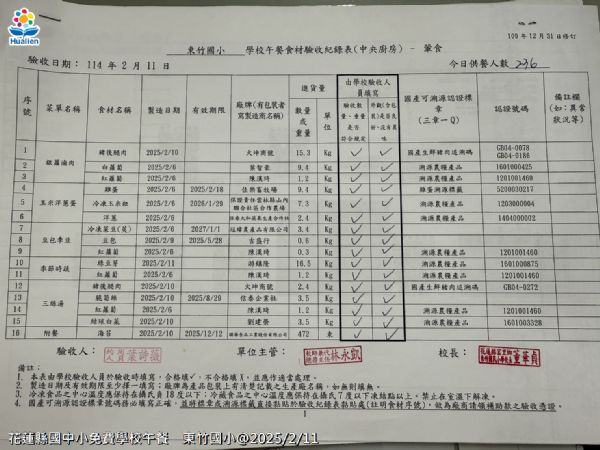 Hualien
109年12月31日修訂
東竹國小 學校午餐食材驗收紀錄表(中央廚房) - 葷食
驗收日期: 114 年 2 月 11 日 今日供餐人數 236
序號 菜單名稱 食材名稱 製造日期 有效期限 廠牌(有包裝者寫製造商名稱) 進貨量 數量或重量 單位 由學校驗收人員填寫 國產可溯源認證標章(三章一Q) 認證號碼 備註欄(如:異常狀況等)
1 豬後腿肉 2025/2/10 大坤商號 15.3 Kg 國產生鮮豬肉追溯碼 GB04-0078 GB04-0186
2 白蘿蔔 2025/2/6 9.4 Kg 溯源農糧產品 1601000425
3 紅蘿蔔 2025/2/6 陳漢琦 1.2 Kg 溯源農糧產品 1201001460
4 雞蛋 2025/2/6 2025/2/18 佳樂畜牧場 9.4 Kg 雞蛋溯源標籤 5200030217
5 玉米洋蔥蛋 冷凍玉米粒 2025/2/6 2026/1/29 7.3 Kg 溯源農糧產品 1203000004
6 洋蔥 2025/2/6 2.4 Kg 溯源農糧產品 1404000002
7 冷凍菜豆(莢) 2025/2/6 2027/1/1 3.4 Kg
8 豆包 2025/2/9 2025/5/28 古盛行 0.6 Kg
9 紅蘿蔔 2025/2/6 陳漢琦 0.3 Kg 溯源農糧產品 1201001460
10 季節時蔬 2025/2/10 16.5 Kg 溯源農糧產品 1601000875
11 紅蘿蔔 2025/2/6 陳漢琦 1.2 Kg 溯源農糧產品 1201001460
12 三絲湯 豬後腿肉 2025/2/10 大坤商號 2.4 Kg 國產生鮮豬肉追溯碼 GB04-0272
13 脆筍絲 2025/2/10 2025/8/29 信泰企業社 3.5 Kg
14 紅蘿蔔 2025/2/6 陳漢琦 1.2 Kg 溯源農糧產品 1201001460
15 結球白菜 2025/2/10 劉建榮 3.5 Kg 溯源農糧產品 1601003328
16 附餐 海苔 2025/2/10 2025/12/12 472 束
驗收人: 單位主管: 林永凱 校長: 葉華貞
備註:
1. 本表由學校驗收人員於驗收時填寫,合格填✓,不合格填╳,並應作適當處理。
2. 製造日期及有效期限至少擇一填寫;廠牌為產品包裝上有清楚記載之生產廠名稱,如無則填無。
3. 冷凍食品之中心溫度應保持在攝氏負18度以下;冷藏食品之中心溫度應保持在攝氏7度以下凍結點以上,禁止在室溫下解凍。
4. 國產可溯源認證標章號碼務必填寫正確,並將標章或溯源標籤直接黏貼於驗收紀錄表黏貼處(註明食材序號),做為廠商請領補助款之驗收憑證。
1
花蓮縣國中小免費學校午餐 東竹國小@2025/2/11